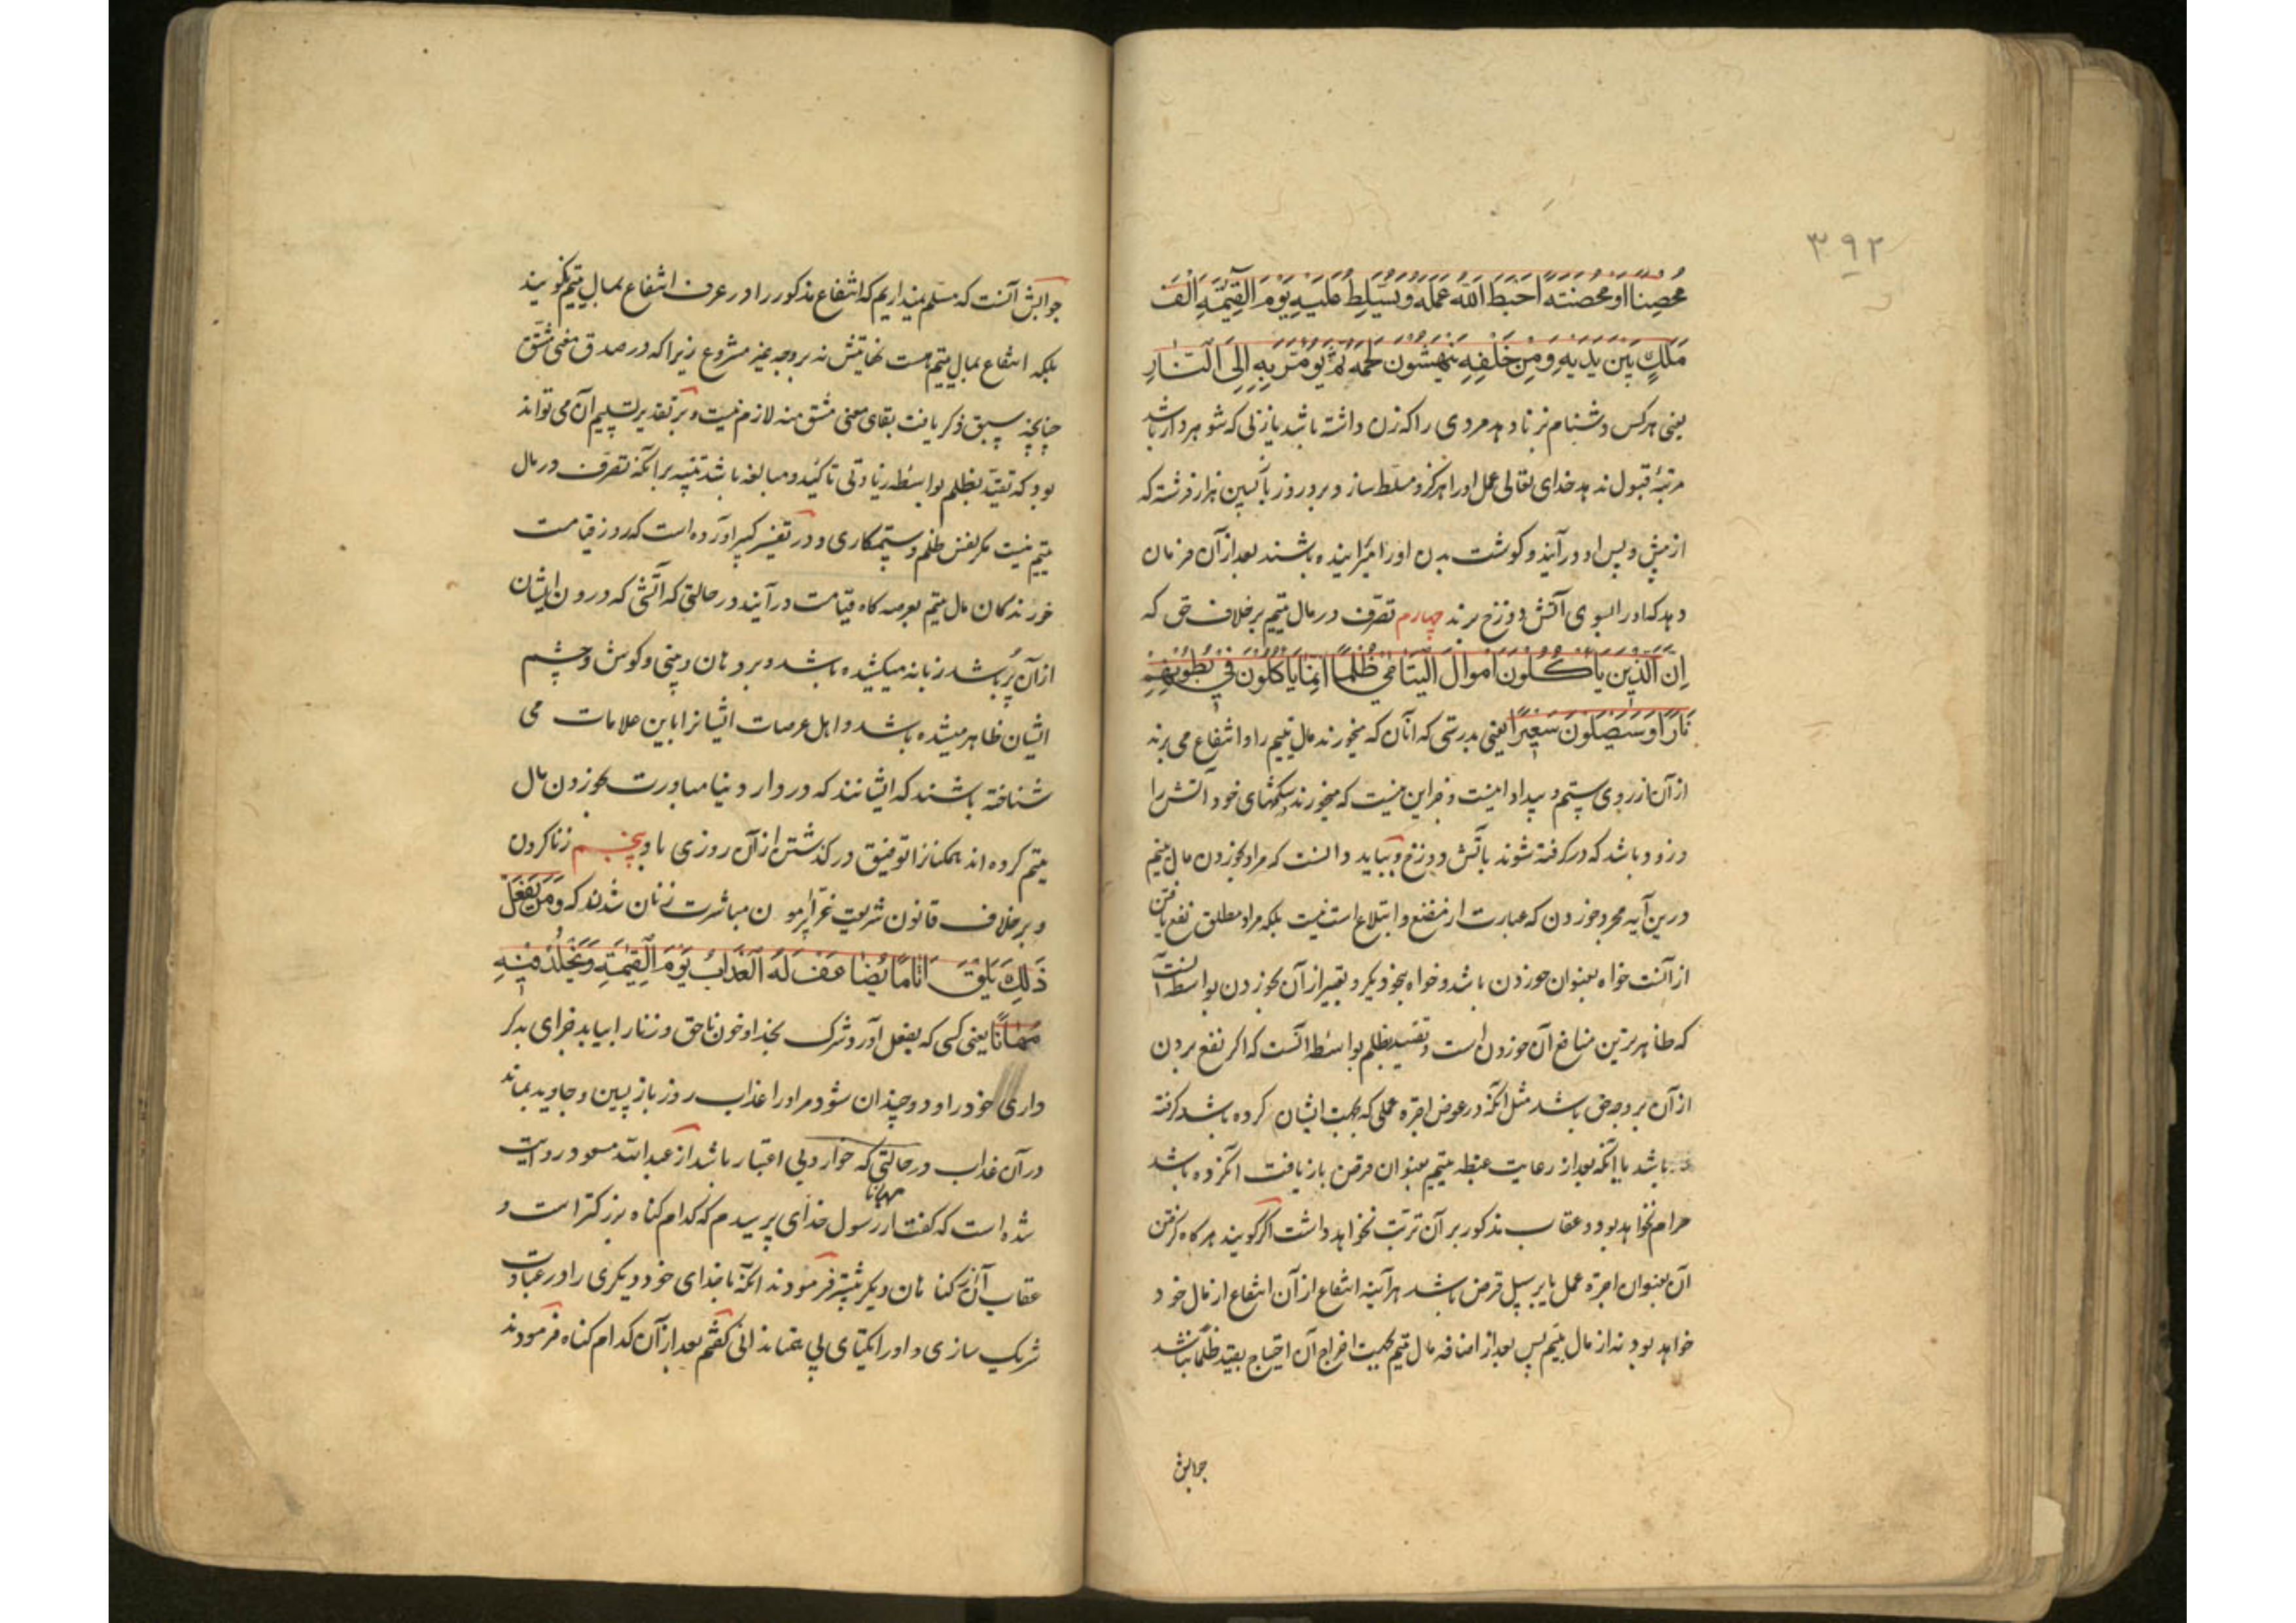 ۳۹۲
محصنا او محصنته احبط الله عمله و یسلط علیه یوم القیمة الف
ملک بین یدیه و من خلفه ینهشون لحمه ثم یومر به الی النار
یعنی هرکس دشنام زنا دهد مردی را که زن داشته باشد یا زنی که شوهردار باشد
مرتبهٔ قبول ندهد خدای تعالی عمل او را هرگز و مسلط سازد برو روز بازپسین هزار فرشته که
از پیش و پس او در آیند و گوشت بدن او را گزاینده باشند بعد از آن فرمان
دهد که او را بسوی آتش دوزخ برند چهارم تصرّف در مال یتیم بر خلاف حق که
اِنَّ الَّذینَ یَأکُلُونَ اَموالَ الیَتامٰی ظُلماً اِنَّما یَأکُلُونَ فی بُطُونِهِم
نَاراً وَ سَیَصلَونَ سَعیراً یعنی بدرستی که آنان که میخورند مال یتیم را و انتفاع می برند
از آن از روی ستم و بیداد اینست و جز این نیست که میخورند بشکمهای خود آتش را
و زود باشد که در گرفته شوند بآتش دوزخ و بباید دانست که مراد بخوردن مال یتیم
درین آیه مجرد خوردن که عبارت از مضغ و ابتلاع است نیست بلکه مراد مطلق نفع یافتن
از آنست خواه بعنوان خوردن باشد و خواه بنحو دیگر و تعبیر از آن بخوردن بواسطه آنست
که ظاهرترین منافع آن خوردن است و تقیید بظلم بواسطه آنست که اگر نفع بردن
از آن بر وجه حق باشد مثل آنکه در عوض اجرهٔ عملی که بجهت ایشان کرده باشد گرفته
باشد یا آنکه بعد از رعایت غبطه یتیم بعنوان قرض بازیافت کرده باشد
حرام نخواهد بود و عقاب مذکور بر آن ترتب نخواهد داشت اگر گویند هرگاه گرفتن
آن بعنوان اجرهٔ عمل یا بر سبیل قرض باشد هرآینه انتفاع از آن انتفاع از مال خود
خواهد بود نه از مال یتیم پس بعد از اضافه مال یتیم بجهت اخراج آن احتیاج بقید ظلما نباشد
جوابش
جوابش آنست که مسلم نمیداریم که انتفاع مذکور را در عرف انتفاع بمال یتیم نگویند
بلکه انتفاع بمال یتیم هست نهایتش نه بر وجه غیر مشروع زیرا که در صدق معنی مشتق
چنانچه سبق ذکر یافت بقای معنی مشتق منه لازم نیست و بر تقدیر تسلیم آن می تواند
بود که تقیید بظلم بواسطه زیادتی تاکید و مبالغه باشد تنبیه بر آنکه تصرف در مال
یتیم نیست مگر نفس ظلم و ستمکاری و در تفسیر کبیر آورده است که روز قیامت
خورندگان مال یتیم بعرصه گاه قیامت درآیند در حالتی که آتشی که درون ایشان
از آن پُر باشد زبانه میکشیده باشد و بر دهان و بینی و گوش و چشم
ایشان ظاهر میشده باشد و اهل عرصات ایشانرا باین علامات می
شناخته باشند که ایشانند که در دار دنیا مبادرت بخوردن مال
یتیم کرده اند همکنانرا توفیق درگذشتن از آن روزی باد پنجم زنا کردن
و بر خلاف قانون شریعت غرّا پیرامون مباشرت زنان شدن که وَ مَن یَفعَل
ذٰلِکَ یَلقَ اَثاماً یُضاعَف لَهُ العَذابُ یَومَ القِیٰمَةِ وَ یَخلُد فیهِ
مُهاناً یعنی کسی که بفعل آورد شرک بخدا و خون ناحق و زنا را بیابد جزای بدکر
داری خود را و دو چندان شود مر او را عذاب روز بازپسین و جاوید بماند
در آن عذاب در حالتی که خوار و بی اعتبار باشد از عبدالله مسعود روایت
مهانا
شده است که گفت از رسول خدای پرسیدم که کدام گناه بزرگتر است و
عقاب آن از گناهان دیگر بیشتر فرمودند آنکه با خدای خود دیگری را در عبادت
شریک سازی و او را یکتای بی همتا ندانی گفتم بعد از آن کدام گناه فرمودند